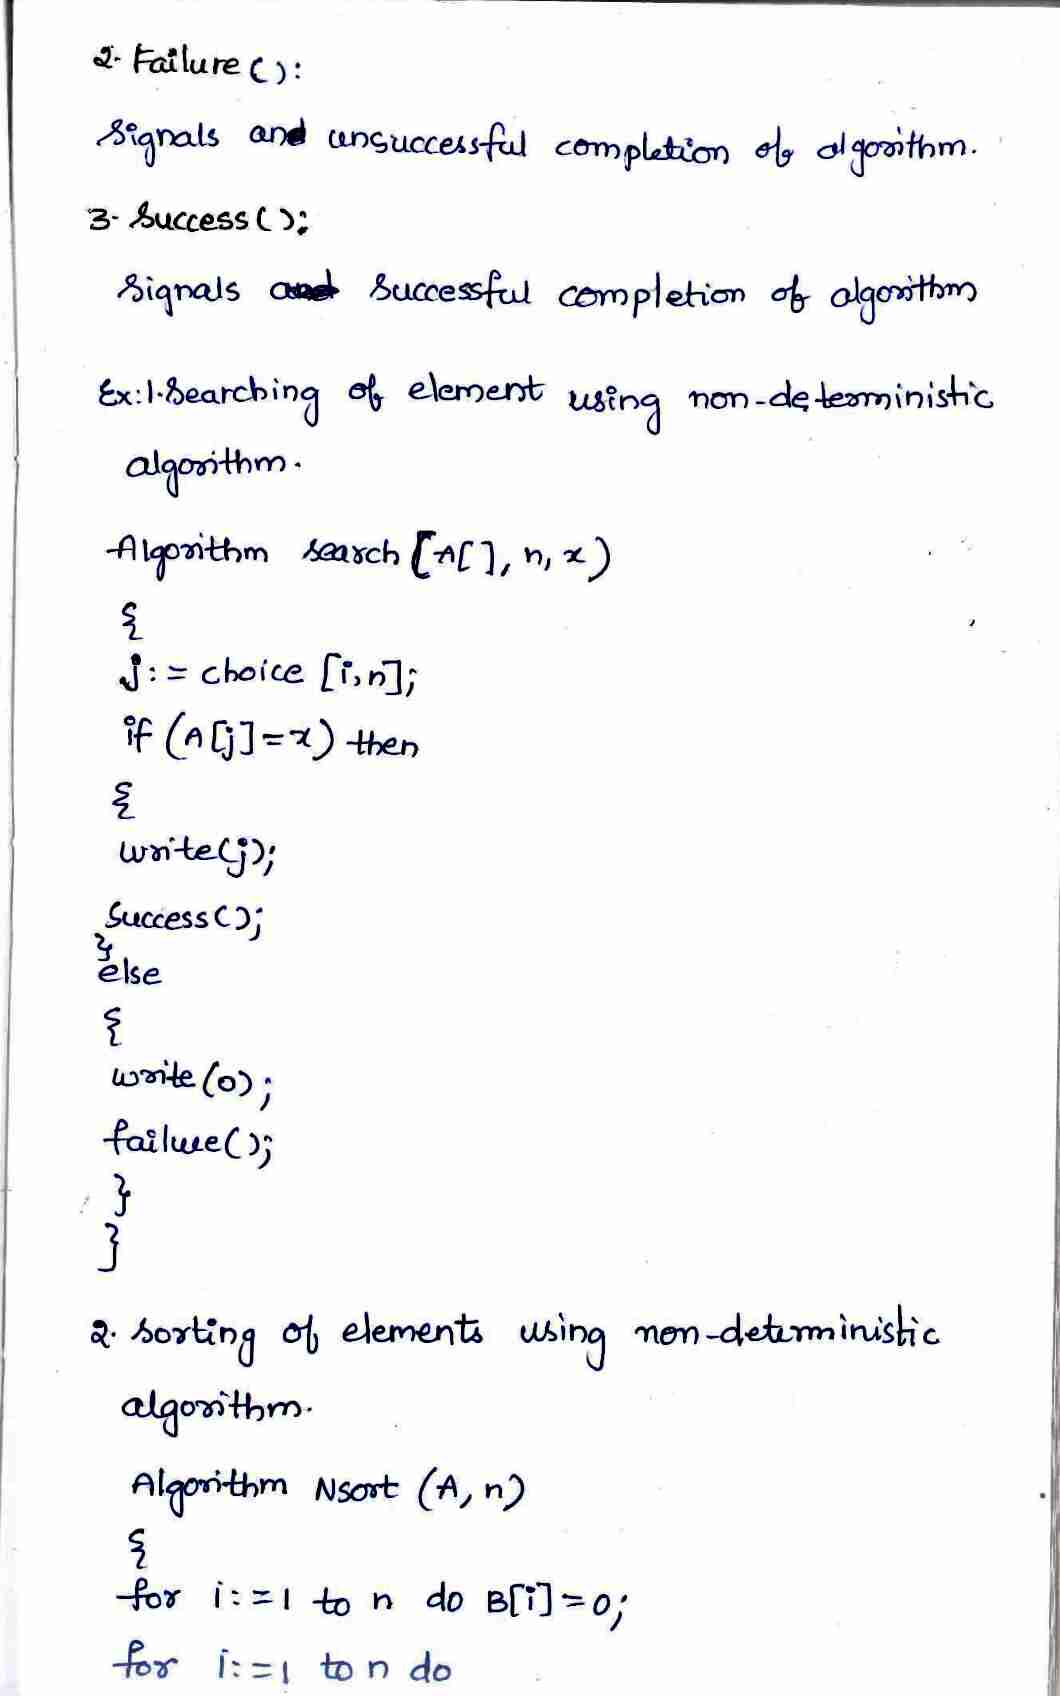 2. Failure():
Signals and unsuccessful completion of algorithm.
3. Success();
Signals successful completion of algorithm
Ex:1. Searching of element using non-deterministic
algorithm.
Algorithm search [A[], n, x)
{
j:= choice [i,n];
if (A[j]=x) then
{
write(j);
Success();
}
else
{
write(0);
failure();
}
}
2. sorting of elements using non-deterministic
algorithm.
Algorithm Nsort (A, n)
{
for i:=1 to n do B[i]=0;
for i:=1 to n do